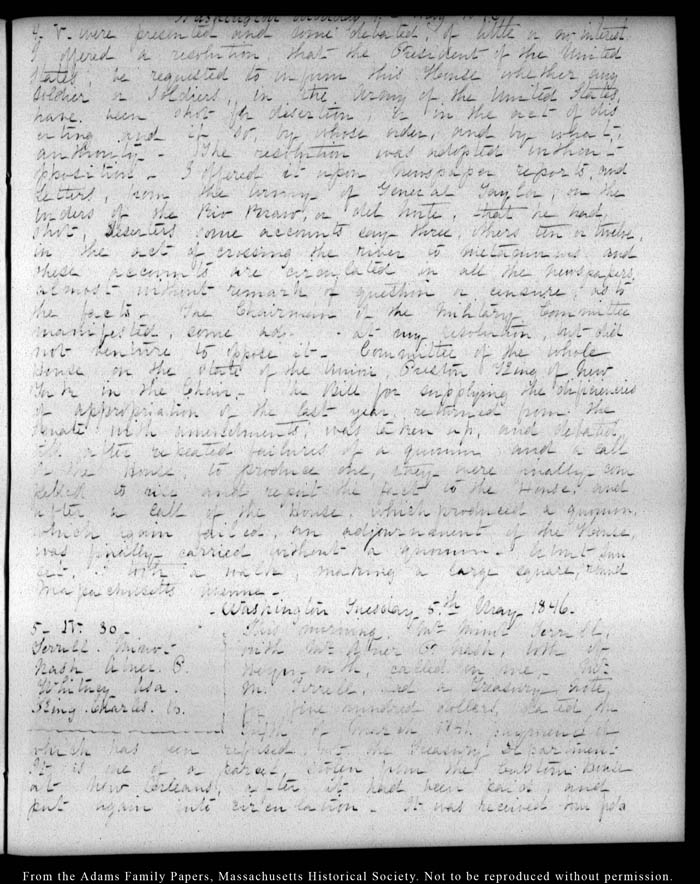 & V. were presented and some debated, of little or no interest.
I offered a resolution, that the President of the United
States, be requested to inform this House whether any
Soldier or Soldiers, in the Army of the United States,
have been shot for desertion, or in the act of des
erting and if so, by whose order, and by what,
authority - The resolution was adopted without
opposition - I offered it upon newspaper reports, and
letters, from the army of General Taylor, on the
borders of the Rio Bravo, or del Norte, that he had,
shot, Deserters some accounts say three, others ten or twelve,
in the act of crossing the river to Matamoras and
these accounts are circulated in all the newspapers,
almost without remark of question or censure, as to
the facts - The Chairman of the Military Committee
manifested, some at my resolution, but did
not venture to oppose it - Committee of the whole
House on the State of the Union, Preston King of New
York in the Chair - The Bill for supplying the deficiencies
of appropriation of the last year, returned from the
Senate with amendments, was taken up, and debated
till after repeated failures of a quorum and a call
of the House, to produce one, they were finally com
pelled to rise and report the fact to the House, and
after a call of the House, which produced a quorum,
which again failed, an adjournment of the House,
was finally carried without a quorum - About Sun
set, I took a walk, making a large square, round
Massachusetts Avenue -
Washington Tuesday 5th May 1846 -
5 - IV. 30 -
Terrell. Minor -
Nash Abner P.
Whitney Asa.
King. Charles. W.
This morning, Mr Minor Terrell,
with Mr Abner P Nash, both of
called on me - Mr
M. Terrell, had a Treasury Note,
for five hundred dollars, dated the
of March 184 payment of
which has been refused, at the Treasury Department -
It is one of a parcel stolen from the Custom House
at New Orleans, after it had been paid, and
put again into circulation - It was received